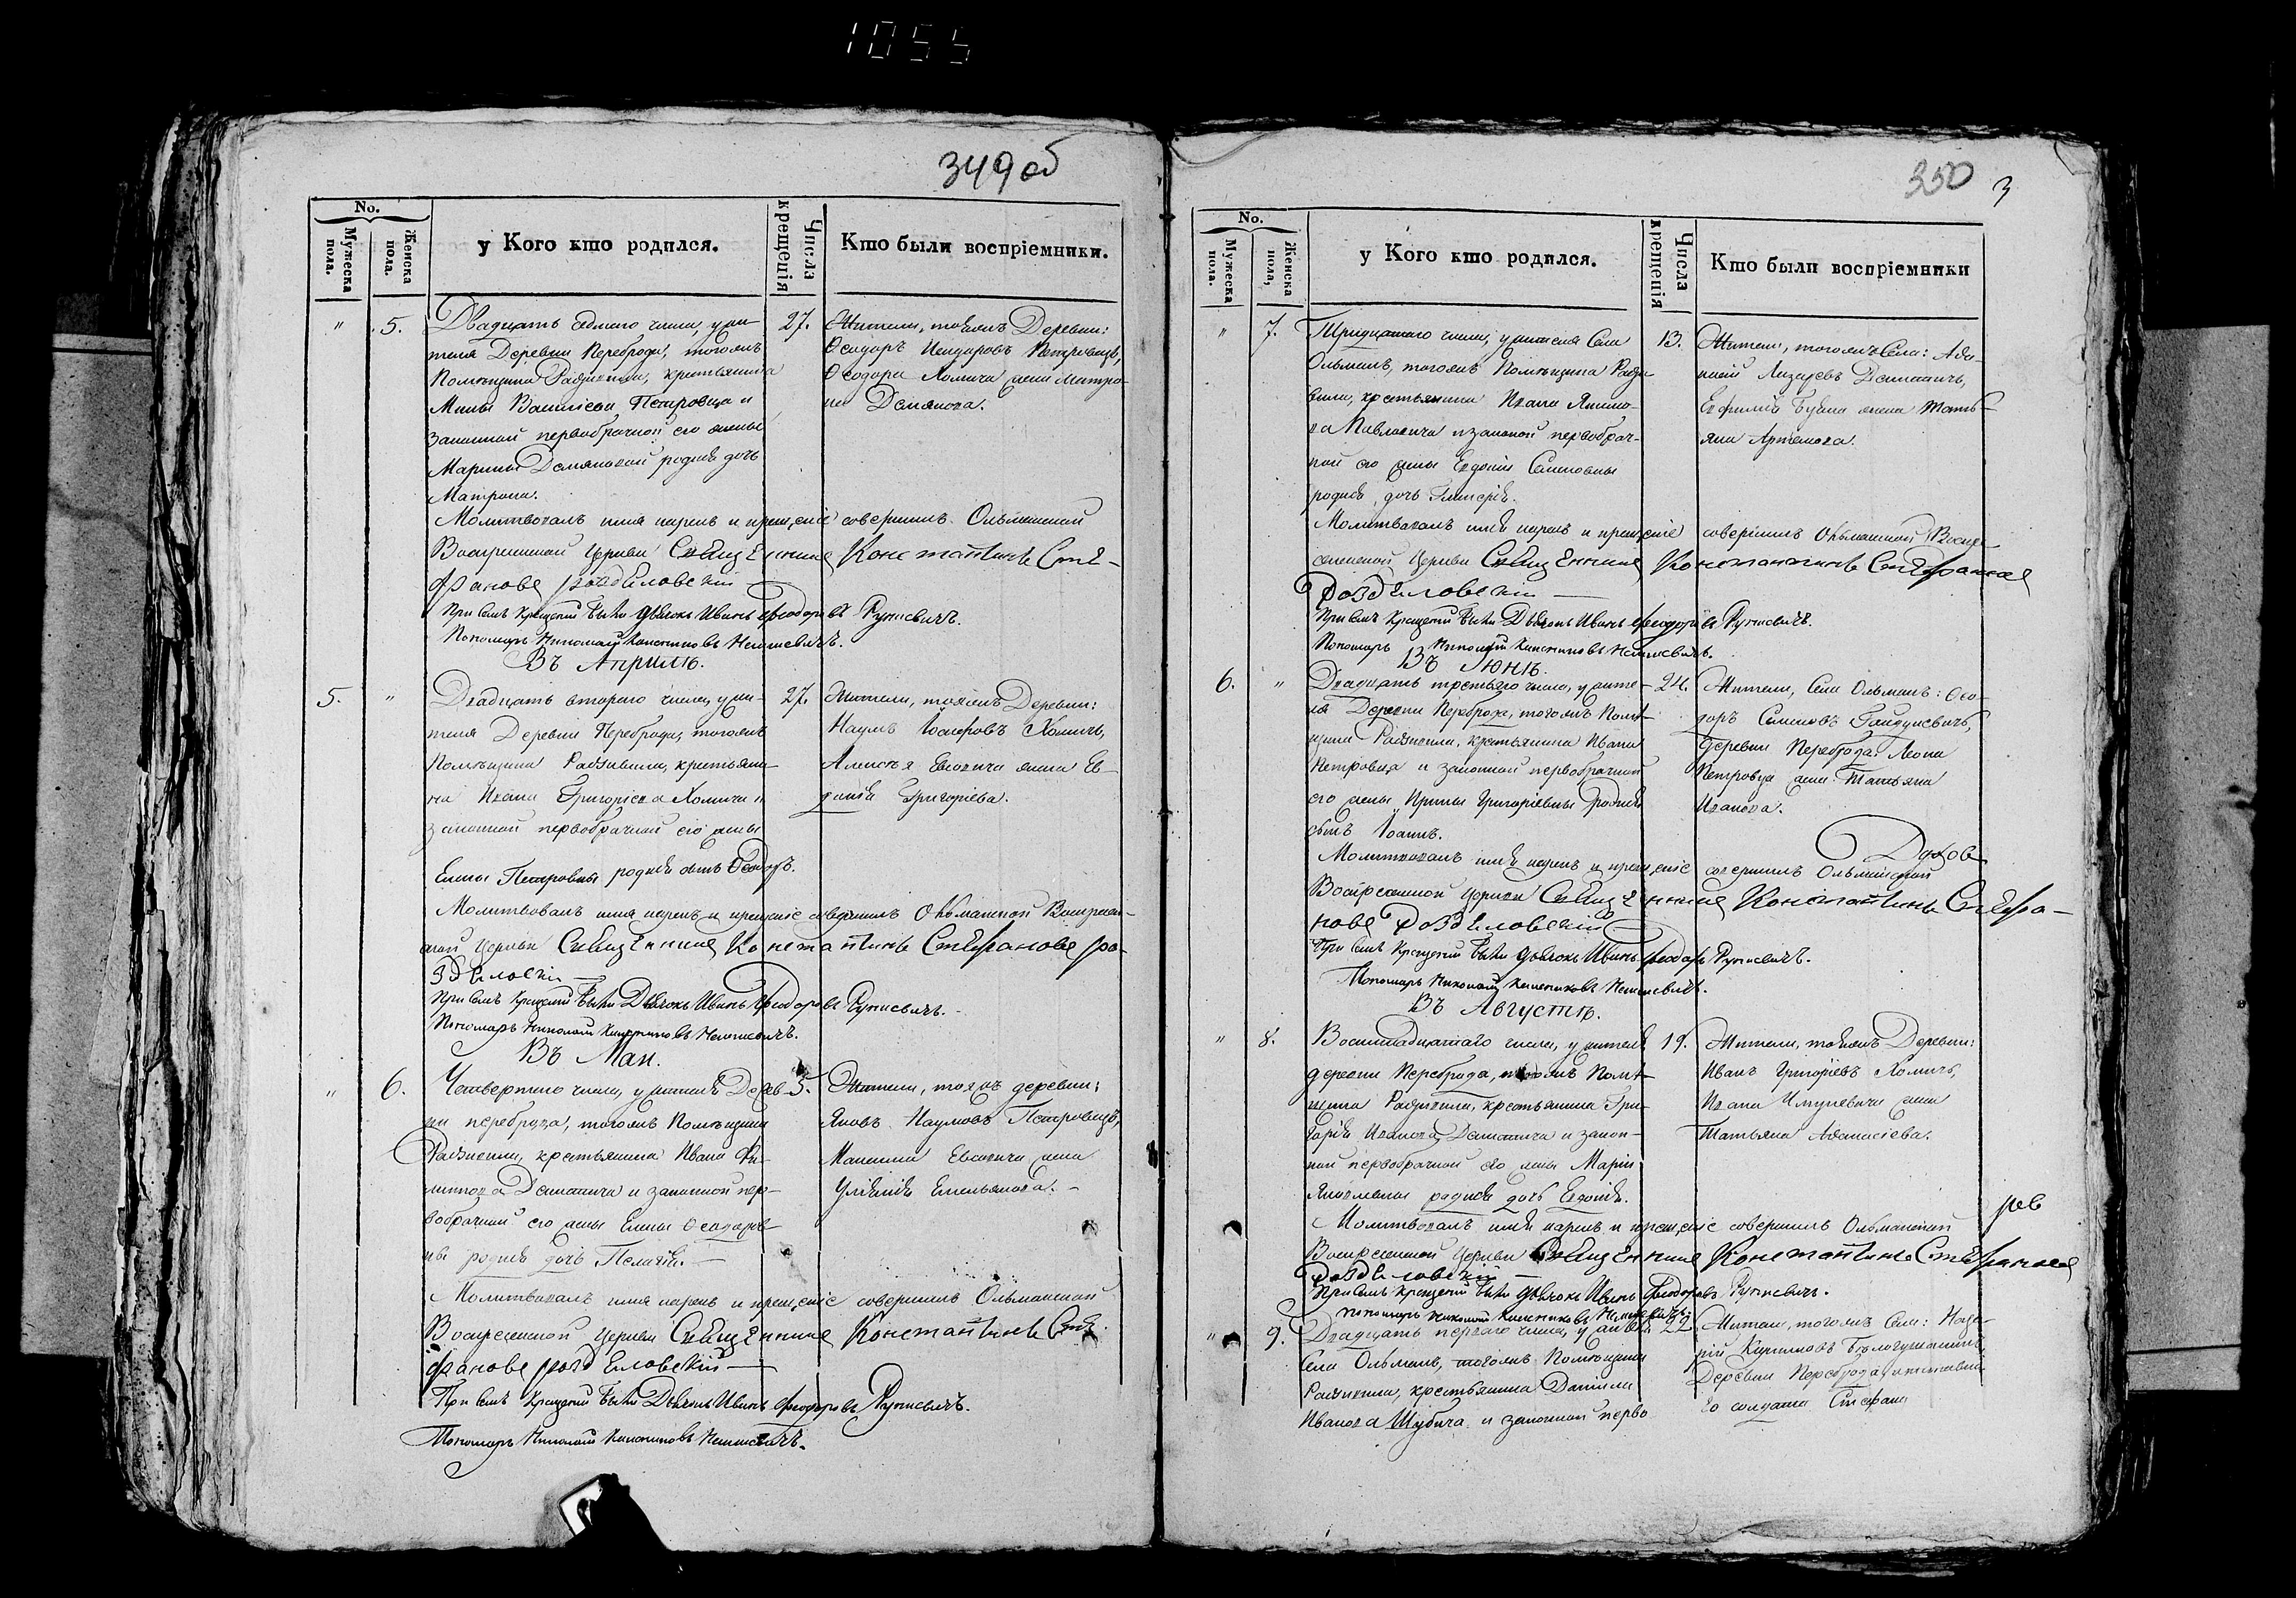 1055
349 об
No.
Мужеска пола.
Женска пола.
у Кого кто родился.
Числа крещенія
Кто были воспріемники.
" 5.
Двадцать седмаго числа, у жи-
теля Деревни Переброда, тогожъ
Помѣщика Радзивила, крестьянина
Мины Василіева Петровца и
законной первобрачной его жены
Марины Демяновой родися дочь
Матрона.
27.
Жители, тояжъ Деревни:
Ѳеодоръ Петровецъ,
Ѳеодора Хомича жена Матро-
на Демянова.
Молитвовалъ имя нарекъ и крещеніе совершилъ Ольманской
Воскресенской Церкви Священникъ Константинъ Сте-
фановъ Роздѣловскій
При семъ Крещеніи были Дьячокъ Иванъ Феодоровъ Рупсевичъ.
Пономарь Николай
Въ Апрѣлѣ.
5. "
Двадцать втораго числа, у жи-
теля Деревни Переброда, тогожъ
Помѣщика Радзивила, крестьяни-
на Ивана Григоріева Хомича и
законной первобрачной его жены
Елены Петровны родися сынъ Ѳеодоръ.
27.
Жители, тояжъ Деревни:
Наумъ Іосифовъ Хомичъ,
Алексѣя жена Ев-
докія Григоріева.
Молитвовалъ имя нарекъ и крещеніе совершилъ Ольманской Воскресен-
ской Церкви Священникъ Константинъ Стефановъ Ро-
здѣловскій
При семъ Крещеніи были Дьячокъ Иванъ Феодоровъ Рупсевичъ.
Пономарь Николай
Въ Маи.
" 6.
Четвертаго числа, у жителя Дерев-
ни переброда, тогожъ Помѣщика
Радзивила, крестьянина Ивана Фи-
липпова и законной пер-
вобрачной его жены Елены Ѳеодоров-
ны родися дочь Пелагія.
5.
Жители, тояжъ деревни:
Яковъ Наумовъ Петровецъ,
жена
Уліянія Емельянова.
Молитвовалъ имя нарекъ и крещеніе совершилъ Ольманской
Воскресенской Церкви Священникъ Константинъ Сте-
фановъ Роздѣловскій
При семъ Крещеніи были Дьячокъ Иванъ Феодоровъ Рупсевичъ.
Пономарь Николай
350 3
No.
Мужеска пола.
Женска пола,
у Кого кто родился.
Числа крещенія
Кто были воспріемники
" 7.
Тридцатаго числа, у жителя Села
Ольманъ, тогожъ Помѣщика Радзи-
вила, крестьянина Ивана Якимо-
ва Павловича и законой первобрач-
ной его жены Евдокіи Семеновны
родися дочь Гликерія.
13.
Жители, тогожъ Села: Афа-
насій Лазаревъ
жена Тать-
яна Артемова.
Молитвовалъ имя нарекъ и крещеніе совершилъ Ольманской Воскре-
сенской Церкви Священникъ Константинъ Стефановъ
Роздѣловскій
При семъ Крещеніи были Дьячокъ Иванъ Феодоровъ Рупсевичъ.
Пономарь Николай
Въ Іюнѣ.
6. "
Двадцать третьяго числа, у жите-
ля Деревни Переброда, тогожъ Помѣ-
щика Радзивила, крестьянина Ивана
Петровца и законной первобрачной
его жены Ирины Григоріевны родися
сынъ Іоаннъ.
24.
Жители, Села Ольманъ: Ѳео-
доръ Семеновъ Гайдукевичъ,
Деревни Переброда Леона
Петровца жена Татьяна
Иванова.
Духов
Молитвовалъ имя нарекъ и крещеніе совершилъ Ольманской
Воскресенской Церкви Священникъ Константинъ Стефа-
новъ Роздѣловскій
При семъ Крещеніи были Дьячокъ Иванъ Феодоровъ Рупсевичъ.
Пономарь Николай
Въ Августѣ.
" 8.
Восемнадцатаго числа, у жителя
деревни Переброда, тогожъ Помѣ-
щика Радзивила, крестьянина Гри-
горія Иванова и закон-
ной первобрачной его жены Маріи
Яковлевны родися дочь Евдокія.
19.
Жители, тояжъ Деревни:
Иванъ Григоріевъ Хомичъ,
Ивана жена
Татьяна Афанасіева.
рев
Молитвовалъ имя нарекъ и крещеніе совершилъ Ольманской
Воскресенской Церкви Священникъ Константинъ Стефановъ
Роздѣловскій
При семъ Крещеніи были Дьячокъ Иванъ Феодоровъ Рупсевичъ.
Пономарь Николай
" 9.
Двадцать перваго числа, у жителя
Села Ольманъ, тогожъ Помѣщика
Радзивила, крестьянина Данила
Иванова Шубича и законной перво
22.
Жители, тогожъ Села:
Деревни Переброда
го солдата Стефана